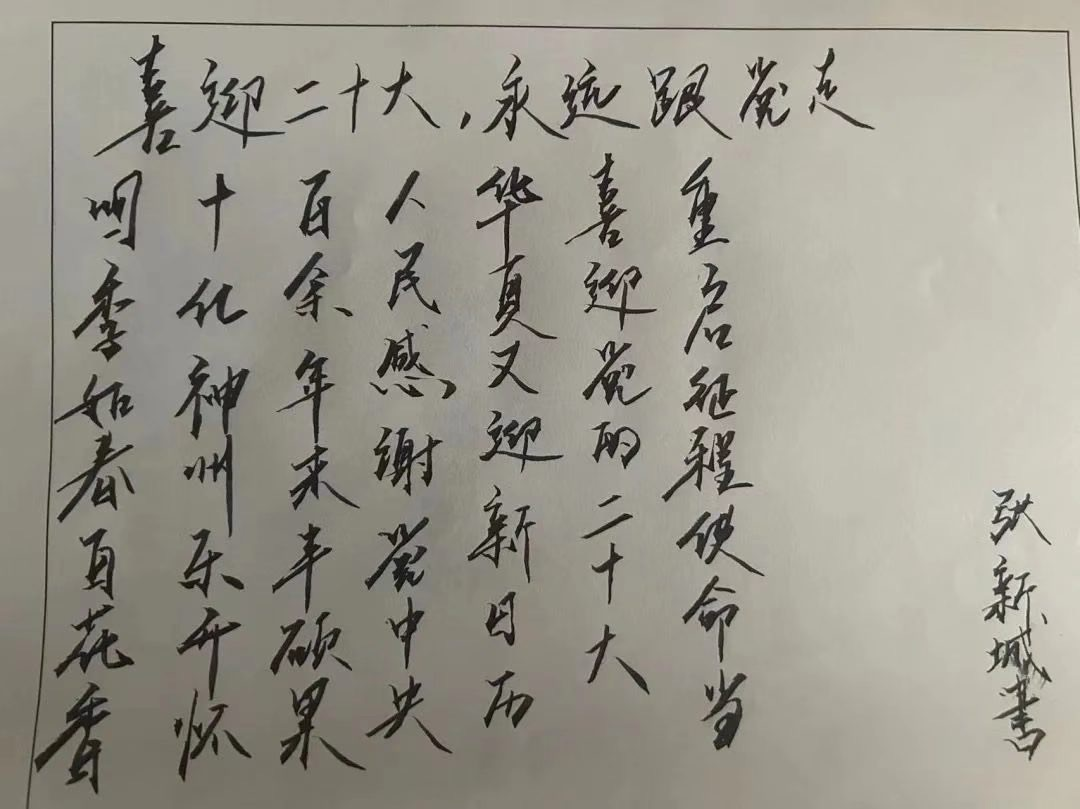 喜迎二十大，永远跟党走
四季如春百花香
十亿神州乐开怀
百余年来丰硕果
人民感谢党中央
华夏又迎新日历
喜迎党的二十大
重启征程使命当
张新城书